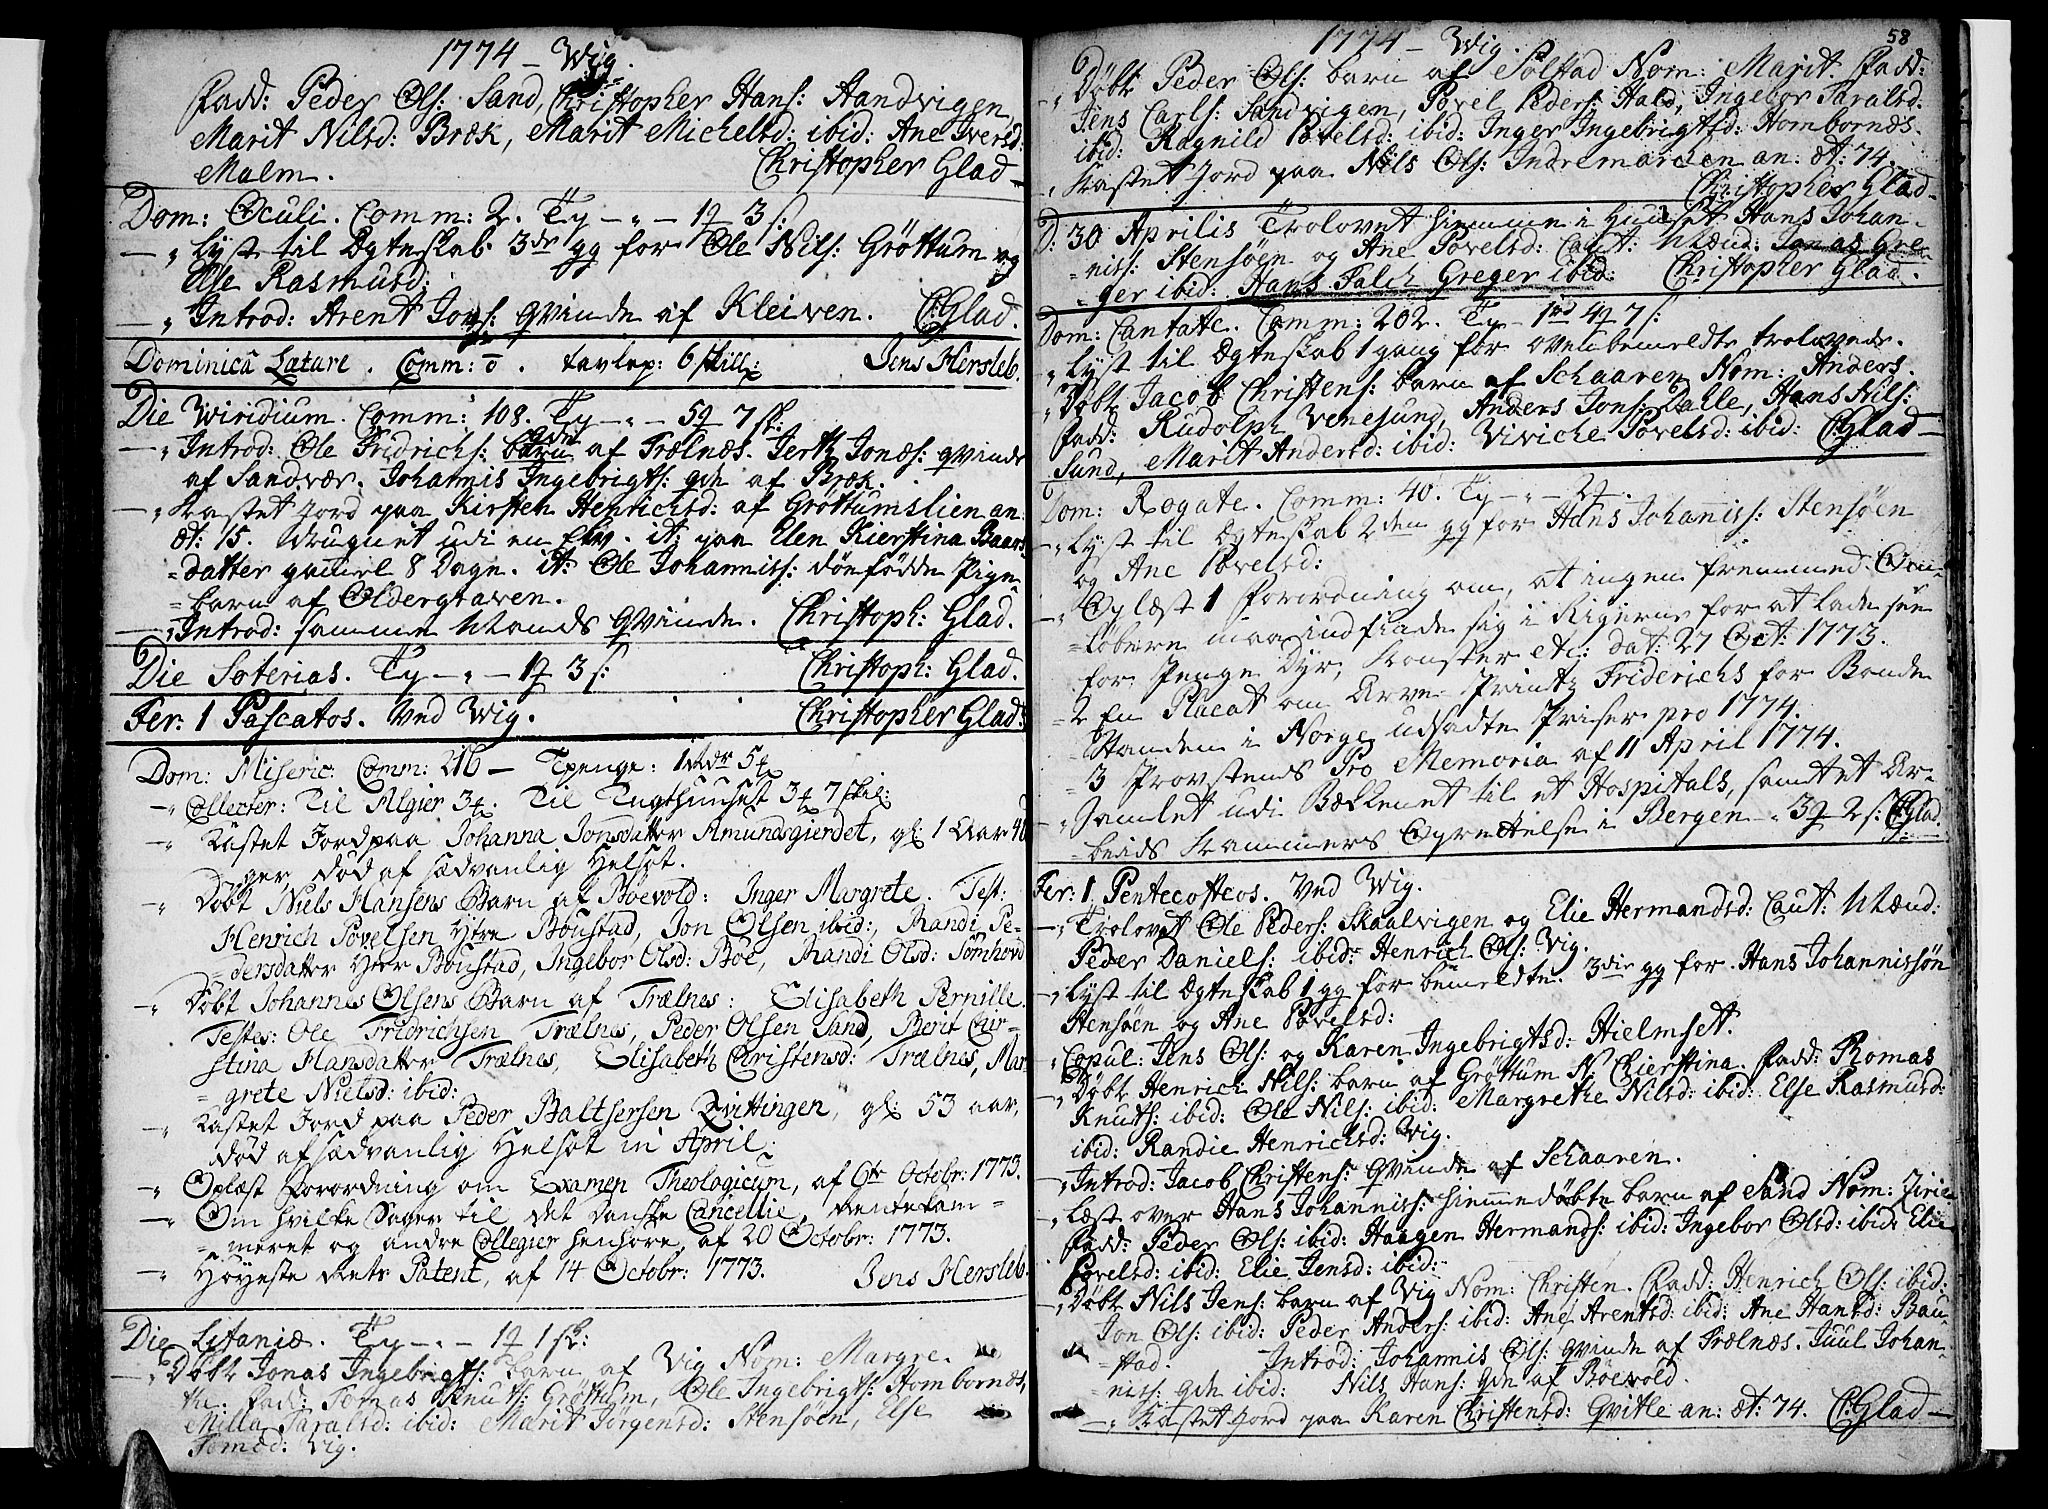 1774 - Wig.
Fadd: Peder Ols: Sand, Christopher Hans: Handvigen,
Marit Nilsd: Bræk, Marit Michelsd: ibid: Ane Iversd:
Malm. Christopher Glad
Dom: Oculi. Comm: 2. Ty - " - 1 3 s:
- " Lyst til Ægteskab 3de gg for Ole Nils: Gröttum og
Else Rasmusd:
- " Introd: Arent Jons: qvinde af Kleiven. C: Glad.
Dominicâ Lætare. Comm: o. tavlep: 6 skill: Jens Hersleb.
Die Wiridium. Comm: 108. Ty - " - 5 7 sk:
- " Introd: Ole Fridrichs: qde af Trælnæs. Jertz Jonæs: qvinde
af Sandvær. Johannis Ingebrigts: qde af Bræk.
- " Kastet Jord paa Kirsten Henrichsd: af Gröttumslien an:
æt: 15. druknet udi en Elv. it: paa Elen Kierstina Baars
= datter gamel 8 Dage. it: Ole Johanniss: döefödde Pige
= barn af Oldergraven.
- " Introd: samme Mands Qvinde. Christoph: Glad.
Die Soterias. Ty - " - 1 3 s: Christoph: Glad.
Fer: 1 Pascatos. Ved Wig. Christopher Glad:
Dom: Miseric: Comm: 216 - Tpenge: 1 Rdr 5
- " Collecter: Til Algier 3. Til Tugthuuset 3 7 skil:
- " Kastet Jord paa Johanna Jonsdatter Amundsgierdet, gl: 1 Aar 40
Uger, død af sædvanlig Helsot.
- " Døbt Niels Hansens Barn af Bøevold: Inger Margrete. Test:
Henrich Povelsen Ytre Boustad, Jon Olsen ibid:, Randi Pe-
= dersdatter Ytter Boustad, Ingebor Olsd: Böe, Randi Olsd: Tørnhovd
- " Døbt Johannes Olsens Barn af Trælnes: Elisabeth Pernille.
Testes: Ole Fridrichsen Trælnes, Peder Olsen Sand, Berit Chir-
stina Hansdatter Trælnes, Elisabeth Christensd: Trælnes, Mar-
= grete Nielsd: ibid:
- " Kastet Jord paa Peder Baltsersen Qvittingen, gl: 53 aar,
død af sædvanlig Helsot in April.
- " Oplæst Forordning om Examen Theologicum, af 6te Octobr: 1773.
- " Om hvilke Sager til det Danske Cancellie, Rentekam =
= meret og andre Collegier henhøre, af 20 Octobr: 1773.
- " Höyeste Rets Patent, af 14 Octobr: 1773. Jens Hersleb.
Die Litaniæ. Ty - " - 1 1 sk:
- " Døbt Jonas Ingebrigts: barn af Vig Nom: Margre-
the. Fadd: Tomas Knuts: Grøttum, Ole Ingebrigts: Hombornæs,
Milla Taralsd: ibid: Marit Jørgensd: Stensöen, Else
Tomæd: Vig.
1774 - Wig. 58
- " Döbt Peder Ols: barn af Solstad Nom: Marit. Fadd:
Jens Carls: Sandvigen, Povel Peders: Hald, Ingebor Taralsd:
ibid: Ragnild Povelsd: ibid: Inger Ingebrigtsd: Hombornæs.
- " Kastet Jord paa Nils Ols: Indremarchen an: æt: 74.
Christopher Glad-
D: 30 Aprilis Trolovet hiemme i Huuset Hans Johan-
= niss: Stensöen og Ane Povelsd: Caut: Mænd: Jonas Gre-
= ger ibid: Hans Falch Greger ibid: Christopher Glad.
Dom: Cantate. Comm: 202. Ty - 1 4 7 s:
- " Lyst til Ægteskab 1 gang for ovenbemeldte trolovede.
- " Døbt Jacob Christens: barn af Schaaren Nom: Anders.
Fadd: Rudolph Venesund, Anders Jons: Dahle, Hans Nils:
Sund, Marit Andersd: ibid: Viviche Povelsd: ibid: C: Glad-
Dom: Rogate. Comm: 40. Ty - " - 2.
- " Lyst til Ægteskab 2den gg for Hans Johaniss: Stensöen
og Ane Povelsd:
- " Oplæst 1 Forordning om, at ingen fremmed Om-
= löbere maa indfinde sig i Rigerne for at lade see
for Penge Dyr, Konster etc: dat: 27 Oct: 1773.
= 2 En Placat om Arve Printz Friderichs for Bonde
= Standen i Norge udsadte Priser pro 1774.
= 3 Provstens Pro Memoria af 11 April 1774.
- " Samlet udi Bækkenet til et Hospitals, samt et Ar-
= beids Kammers Oprettelse i Bergen - " 3 2 s: C: Glad.
Fer: 1 Pentecosteos. Ved Wig.
- " Trolovet Ole Peders: Skaalvigen og Elie Hermandsd: Caut: Mænd:
Peder Daniels: ibid: Henrich Ols: Vig.
- " Lyst til Ægteskab 1 gg for bemeldte. 3die gg for Hans Johannissön
Stensöen og Ane Povelsd:
- " Copul: Jens Ols: og Karen Ingebrigtsd: Hielmset.
- " Döbt Henrich Nils: barn af Gröttum N: Chierstina. Fadd: Tomas
Knuts: ibid: Ole Nils: ibid: Margrethe Nilsd: ibid: Else Rasmusd:
ibid: Randie Henrichsd: Vig.
- " Introd: Jacob Christens: Qvinde af Schaaren.
- " Læst over Hans Johanniss: hiemmedøbte barn af Sand Nom: Zirie-
Fadd: Peder Ols: ibid: Haagen Hermands: ibid: Ingebor Olsd: ibid: Elie
Povelsd: ibid: Elie Jensd: ibid:
- " Döbt Nils Jens: barn af Vig Nom: Christen. Fadd: Henrich Ols: ibid:
Jon Ols: ibid: Peder Anders: ibid: Ane Arentsd: ibid: Ane Hansd: Bau-
= stad. Introd: Johannis Ols: qvinde af Trælnæs. Juul Johan-
niss: qde ibid: Nils Hans: qde af Böevold.
- " Kastet Jord paa Karen Christensd: Qvitle an: æt: 74. C: Glad-